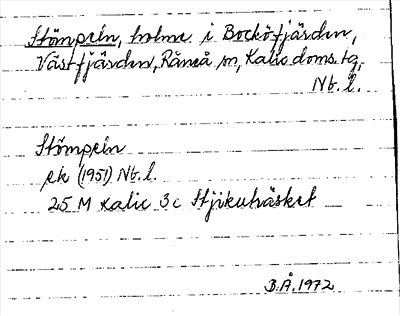 Stömpeln, holme i Bocköfjärden,
Västfjärden, Råneå sn, Kalix doms.tg,
Nb. l.
Stömpeln
ek (1951) Nb. l.
25 M Kalix 3c Stjikuträsket
B.Å. 1972